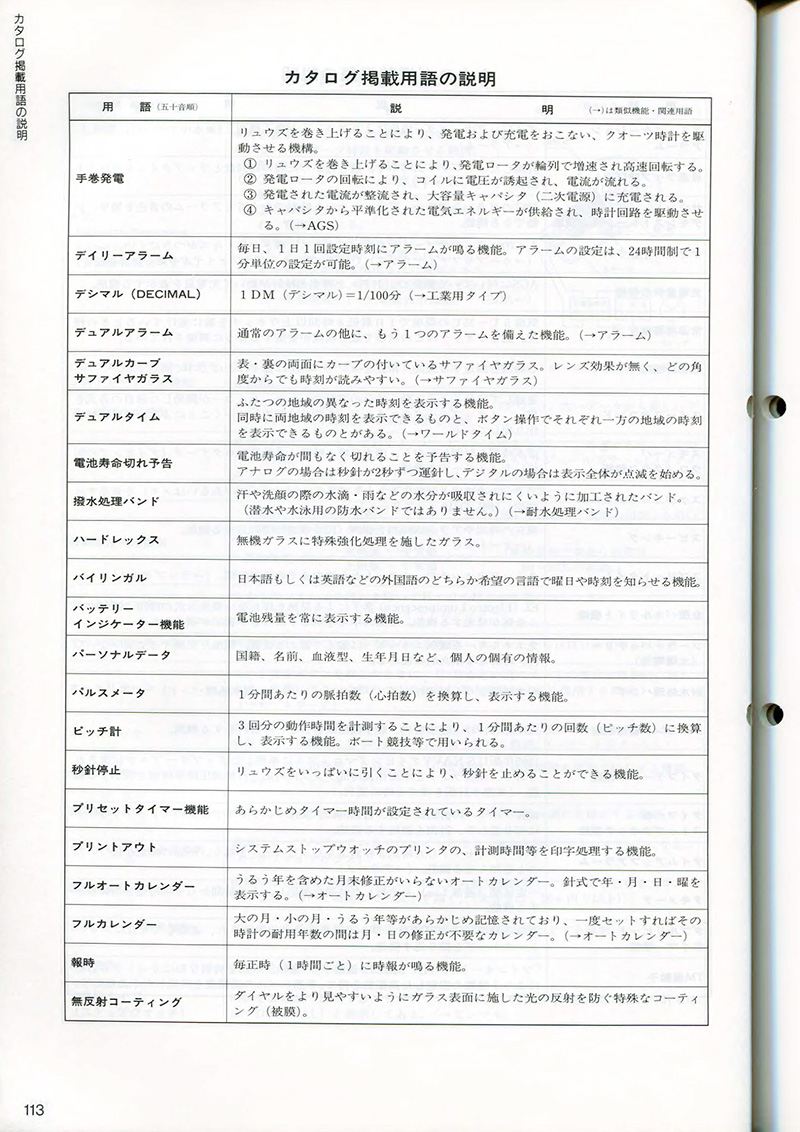 カタログ掲載用語の説明
カタログ掲載用語の説明
用　語（五十音順）
説　明　（→）は類似機能・関連用語
手巻発電
リュウズを巻き上げることにより、発電および充電をおこない、クオーツ時計を駆
動させる機構。
① リュウズを巻き上げることにより、発電ロータが輪列で増速され高速回転する。
② 発電ロータの回転により、コイルに電圧が誘起され、電流が流れる。
③ 発電された電流が整流され、大容量キャパシタ（二次電源）に充電される。
④ キャパシタから平準化された電気エネルギーが供給され、時計回路を駆動させ
る。（→AGS）
デイリーアラーム
毎日、1日1回設定時刻にアラームが鳴る機能。アラームの設定は、24時間制で1
分単位の設定が可能。（→アラーム）
デシマル（DECIMAL）
1DM（デシマル）=1/100分（→工業用タイプ）
デュアルアラーム
通常のアラームの他に、もう1つのアラームを備えた機能。（→アラーム）
デュアルカーブ
サファイヤガラス
表・裏の両面にカーブの付いているサファイヤガラス。レンズ効果が無く、どの角
度からでも時刻が読みやすい。（→サファイヤガラス）
デュアルタイム
ふたつの地域の異なった時刻を表示する機能。
同時に両地域の時刻を表示できるものと、ボタン操作でそれぞれ一方の地域の時刻
を表示できるものとがある。（→ワールドタイム）
電池寿命切れ予告
電池寿命が間もなく切れることを予告する機能。
アナログの場合は秒針が2秒ずつ運針し、デジタルの場合は表示全体が点滅を始める。
撥水処理バンド
汗や洗顔の際の水滴・雨などの水分が吸収されにくいように加工されたバンド。
（潜水や水泳用の防水バンドではありません。）（→耐水処理バンド）
ハードレックス
無機ガラスに特殊強化処理を施したガラス。
バイリンガル
日本語もしくは英語などの外国語のどちらか希望の言語で曜日や時刻を知らせる機能。
バッテリー
インジケーター機能
電池残量を常に表示する機能。
パーソナルデータ
国籍、名前、血液型、生年月日など、個人の個有の情報。
パルスメータ
1分間あたりの脈拍数（心拍数）を換算し、表示する機能。
ピッチ計
3回分の動作時間を計測することにより、1分間あたりの回数（ピッチ数）に換算
し、表示する機能。ボート競技等で用いられる。
秒針停止
リュウズをいっぱいに引くことにより、秒針を止めることができる機能。
プリセットタイマー機能
あらかじめタイマー時間が設定されているタイマー。
プリントアウト
システムストップウオッチのプリンタの、計測時間等を印字処理する機能。
フルオートカレンダー
うるう年を含めた月末修正がいらないオートカレンダー。針式で年・月・日・曜を
表示する。（→オートカレンダー）
フルカレンダー
大の月・小の月・うるう年等があらかじめ記憶されており、一度セットすればその
時計の耐用年数の間は月・日の修正が不要なカレンダー。（→オートカレンダー）
報時
毎正時（1時間ごと）に時報が鳴る機能。
無反射コーティング
ダイヤルをより見やすいようにガラス表面に施した光の反射を防ぐ特殊なコーティ
ング（被膜）。
113